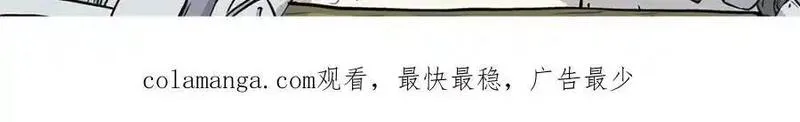 colamanga.com观看，最快最稳，广告最少